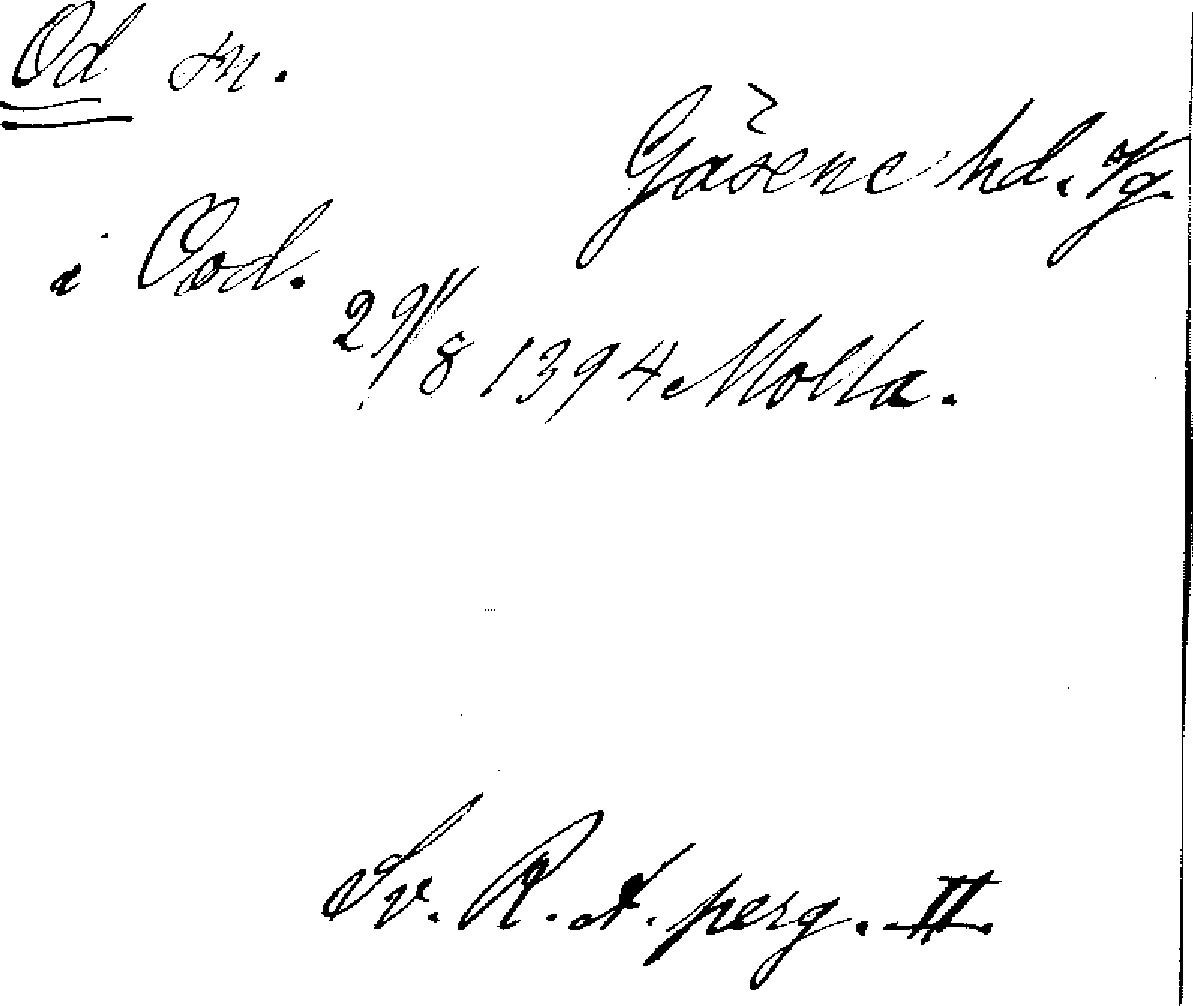 Od sn.
Gäsene hd. Vg.
i Ood.
29/8 1394 Molla.
Sv. R. A. perg. II.